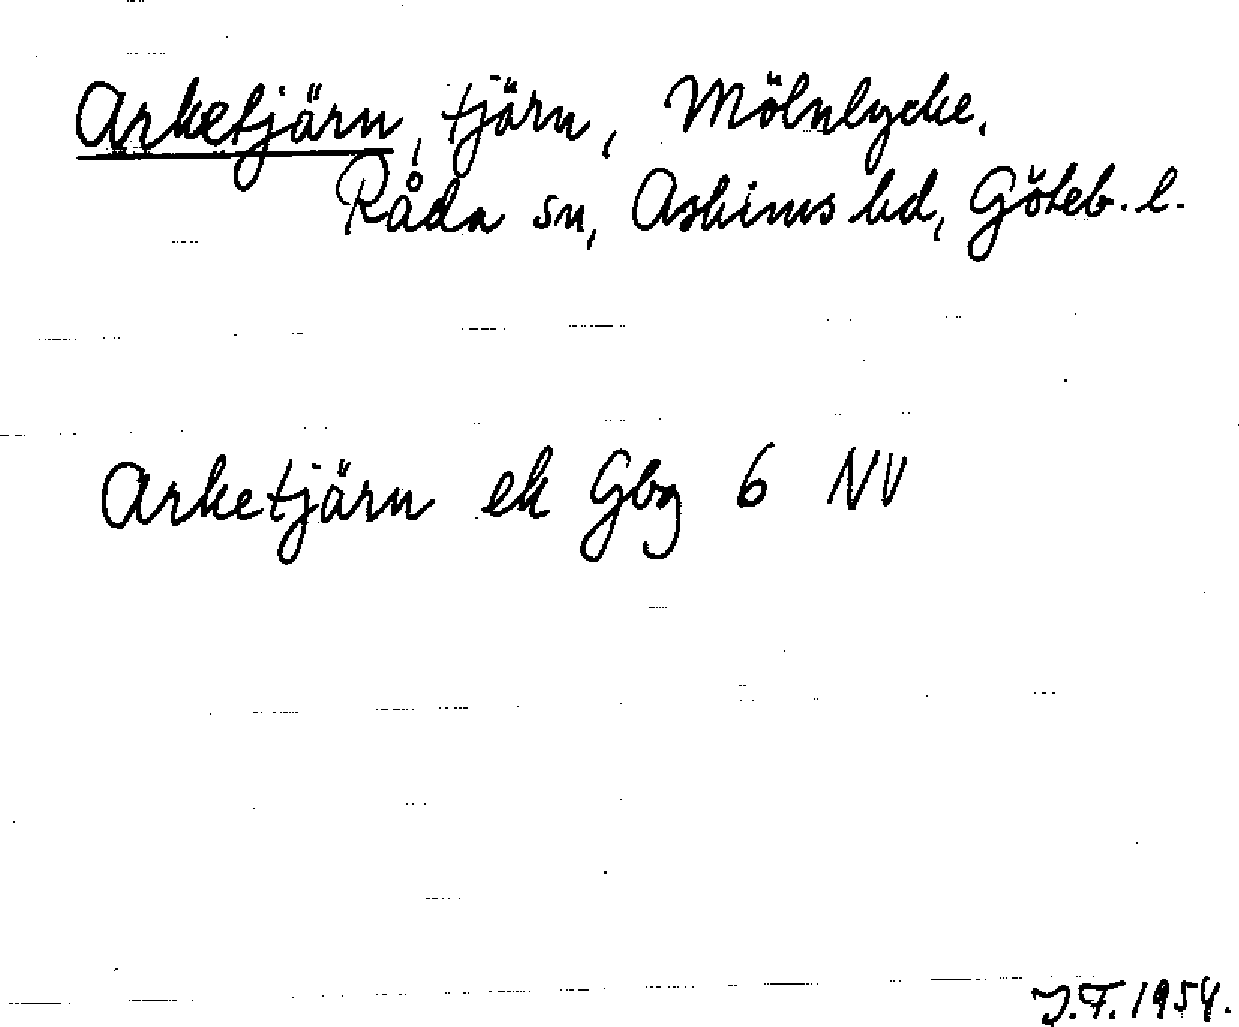 Arketjärn, tjärn, Mölnlycke,
Råda sn, Askims hd, Göteb. l.
Arketjärn ek Gbg 6 NV
J.F. 1954.